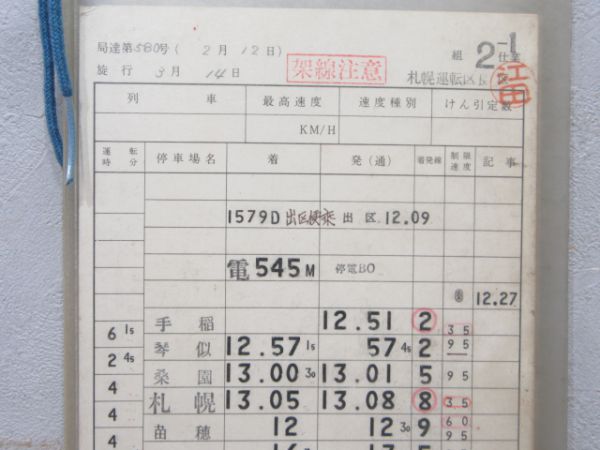 局達第580号( 2月12日)
組 2-1 仕業
施行 3月 14日
架線注意
札幌運転区
江田
列 車 最高速度 速度種別 けん引定数
KM/H
運転時分 停車場名 着 発(通) 着発線 制限速度 記事
1579D 出区便乗 出 区 12.09
電545M 停電BO
⑧ 12.27
手 稲 12.51 2 35
6 15 琴 似 12.57 15 57 45 2 95
2 45 桑 園 13.00 30 13.01 5 95
4 札 幌 13.05 13.08 8 35
4 苗 穂 12 12 30 9 60 95
4